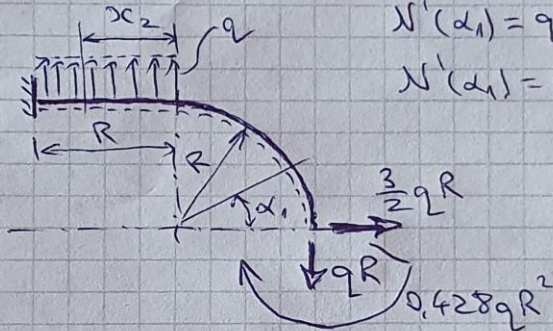 x₂
q
N'(α₁) = q
N'(α₁) =
R
R
α₁
3/2 qR
qR
0,428qR²